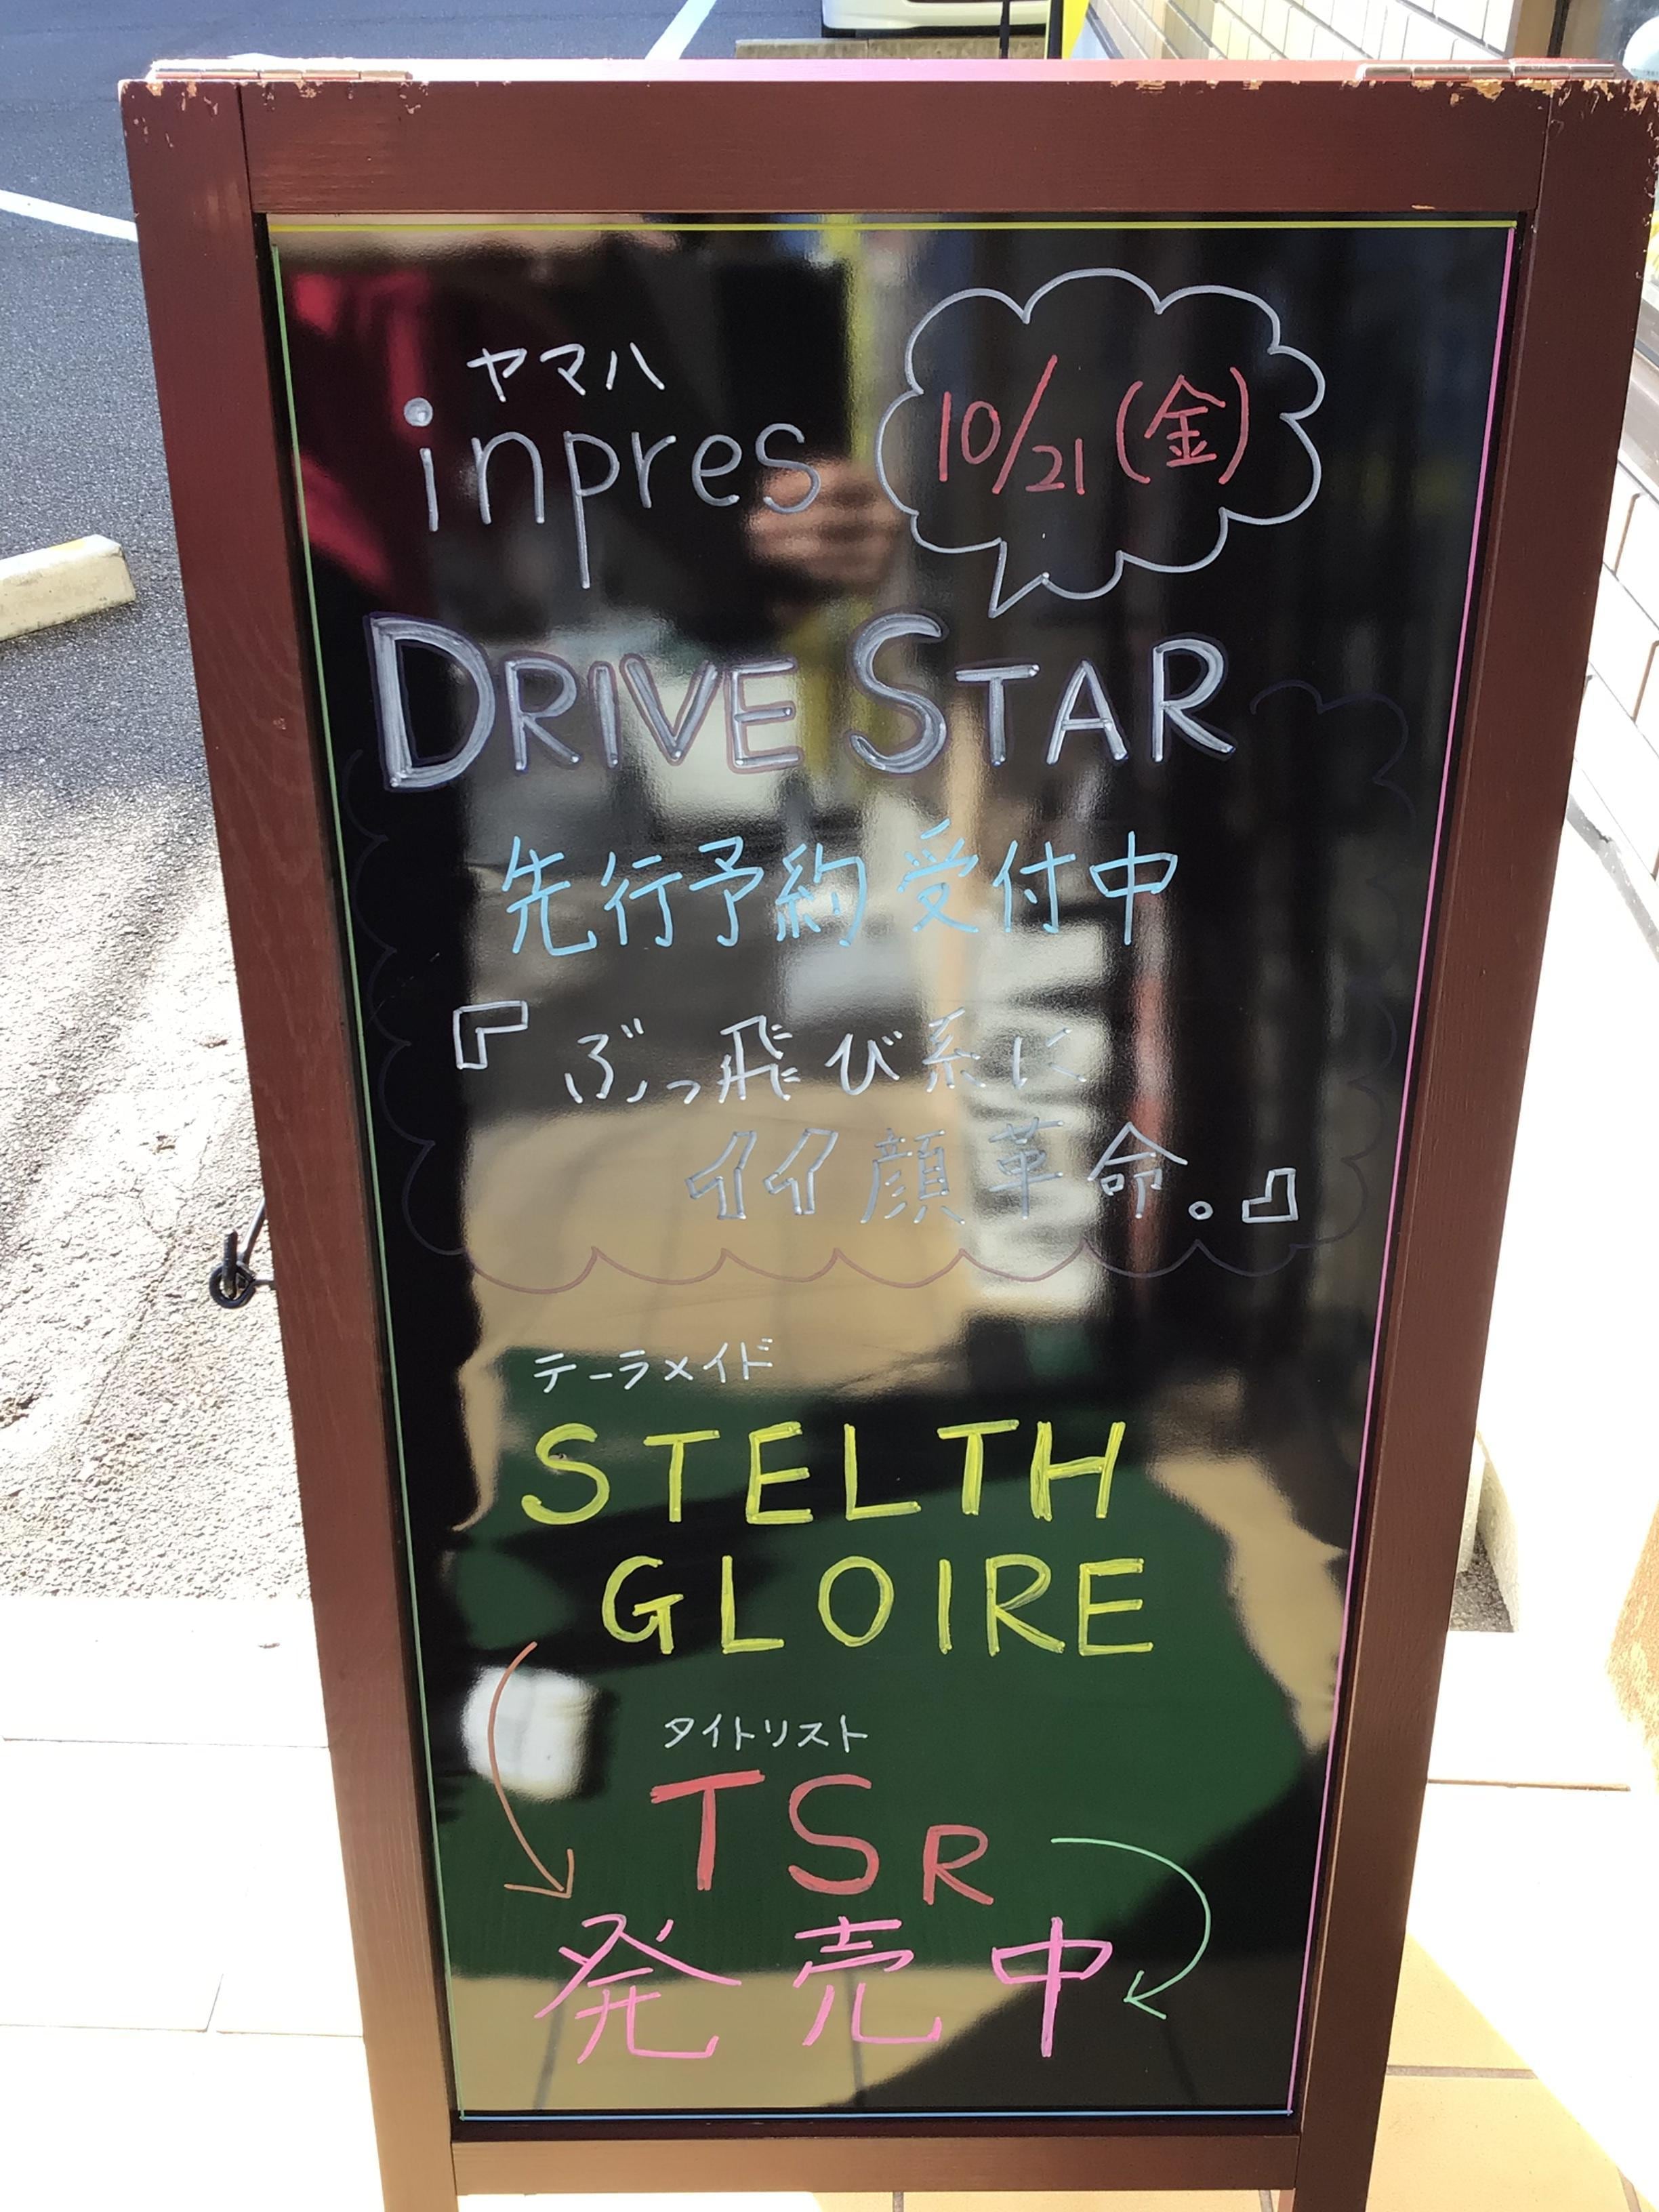 ヤマハ
inpres
10/21(金)
DRIVE STAR
先行予約受付中
『ぶっ飛び系に
イイ顔革命。』
テーラメイド
STELTH
GLOIRE
タイトリスト
TSR
発売中